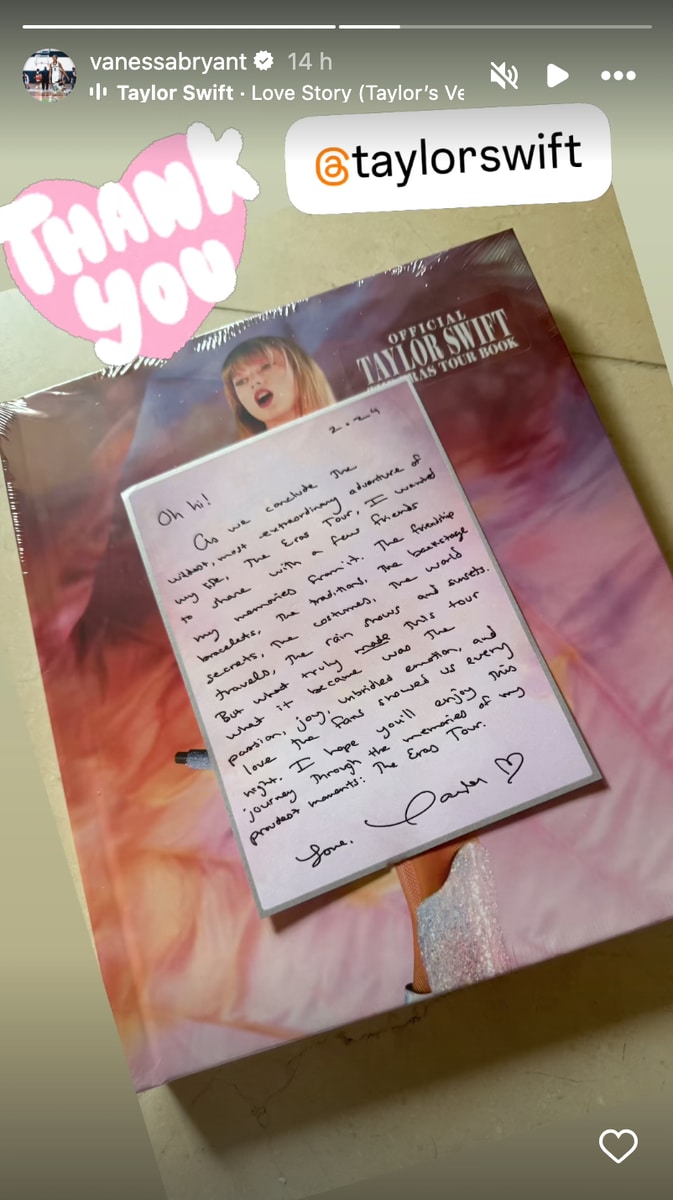 vanessabryant 14 h
Taylor Swift · Love Story (Taylor's Ve
THANK
YOU
@taylorswift
OFFICIAL
TAYLOR SWIFT
ERAS TOUR BOOK
2024
Oh hi!
As we conclude the
wildest, most extraordinary adventure of
my life, The Eras Tour, I wanted
to share with a few friends
my memories from it. The friendship
bracelets, the traditions, the backstage
secrets, the costumes, the world
travels, the rain shows and sunsets.
But what truly made this tour
what it became was the
passion, joy, unbridled emotion, and
love the fans showed us every
night. I hope you'll enjoy this
journey through the memories of my
proudest moments: The Eras Tour.
Love,
Taylor